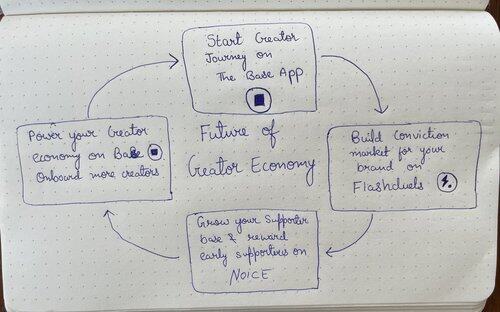 Start Creator
Journey on
The Base App
Future of
Creator Economy
Build Conviction
market for your
brand on
Flashduels
Grow your Supporter
base & reward
early supporters on
NOICE
Power your Creator
economy on Base
Onboard more creators